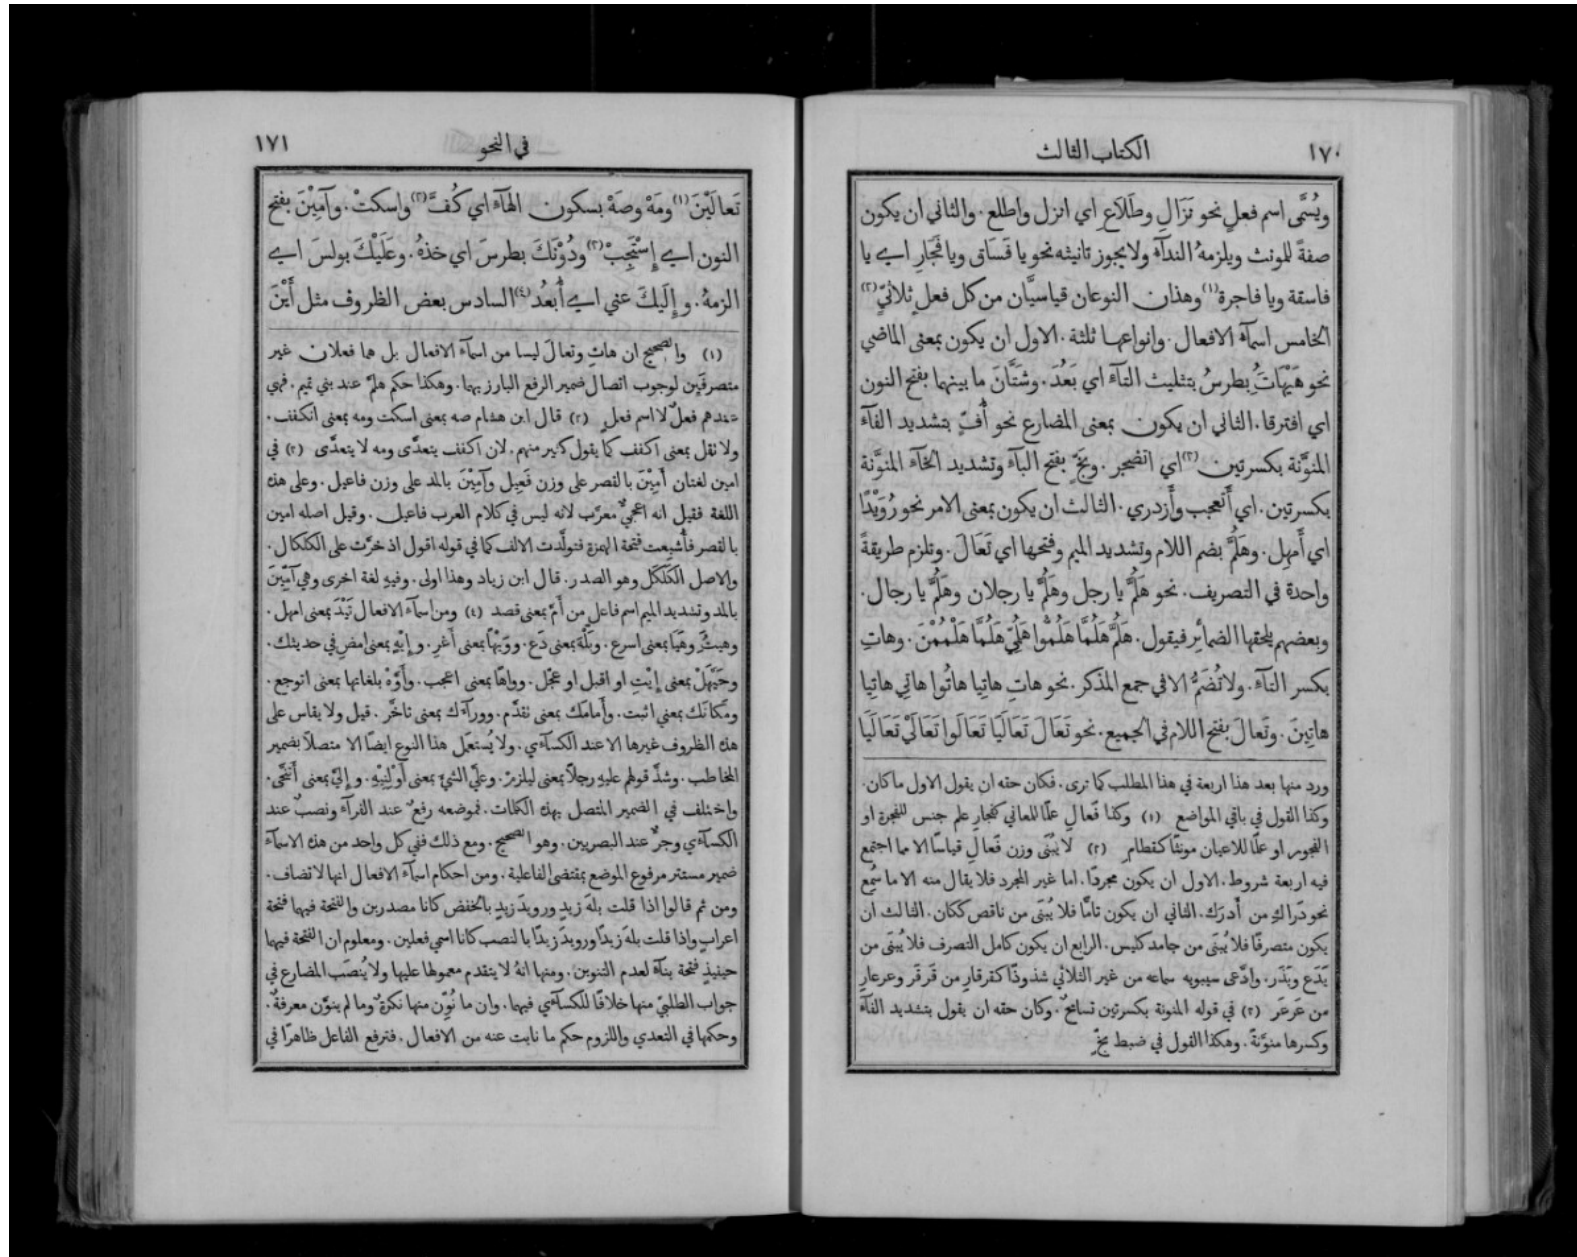 ١٧٠
الكتاب الثالث
ويُسَمَّى اسم فعلٍ نحو نَزَالِ وطَلَاعِ اي انزل واطلع . والثاني ان يكون
صفةً للمونث ويلزمهُ الندآءُ ولا يجوز تانيثه نحو يا فَسَاقِ ويا فَجَارِ اي يا
فاسقة ويا فاجرة (١) وهذان النوعان قياسيَّان من كل فعلٍ ثلاثيٍّ (٢)
الخامس اسمآءُ الافعال . وانواعها ثلثة . الاول ان يكون بمعنى الماضي
نحو هَيْهَاتَُِ بطرسُ بتثليث التآءِ اي بَعُدَ . وشَتَّانَ ما بينهما بفتح النون
اي افترقا . الثاني ان يكون بمعنى المضارع نحو أُفٍّ بتشديد الفآءِ
المنوَّنة بكسرتين (٣) اي اتضجر . وبَخٍّ بفتح البآءِ وتشديد الخآءِ المنوَّنة
بكسرتين . اي أَتعجب وأَزدري . الثالث ان يكون بمعنى الامر نحو رُوَيْدًا
اي أَمهِل . وهَلُمَّ بضم اللام وتشديد الميم وفتحها اي تَعَالَ . وتلزم طريقةً
واحدة في التصريف . نحو هَلُمَّ يا رجل وهَلُمَّ يا رجلان وهَلُمَّ يا رجال .
وبعضهم يلحقها الضمائر فيقول . هَلُمَّ هَلُمَّا هَلُمُّوا هَلُمِّي هَلُمَّا هَلْمُمْنَ . وهاتِ
بكسر التآءِ . ولا تُضَمُّ الا في جمع المذكر . نحو هاتِ هاتِيا هاتُوا هاتِي هاتِيا
هاتِينَ . وتَعالَ بفتح اللام في الجميع . نحو تَعَالَ تَعَالَيَا تَعَالَوا تَعَالَيْ تَعَالَيَا
ورد منها بعد هذا اربعة في هذا المطلب كما ترى . فكان حقه ان يقول الاول ما كان .
وكذا القول في باقي المواضع (١) وكذا فَعالِ علمًا للمعاني كفجارِ علم جنس للفجرة او
الفجور او علمًا للاعيان مونثًا كقطامِ (٢) لا يُبنَى وزن فَعالِ قياسًا الا مما اجتمع
فيه اربعة شروط . الاول ان يكون مجردًا . اما غير المجرد فلا يقال منه الا ما سُمِع
نحو دَراكِ من أَدرَك . الثاني ان يكون تامًّا فلا يُبنَى من ناقص ككان . الثالث ان
يكون متصرفًا فلا يُبنَى من جامد كليس . الرابع ان يكون كامل التصرف فلا يُبنَى من
يَدَع ويَذَر . وادَّعى سيبويه سماعه من غير الثلاثي شذوذًا كقرقارِ من قَرقَر وعرعارِ
من عَرعَر (٣) في قوله المنونة بكسرتين تسامحٌ . وكان حقه ان يقول بتشديد الفآءِ
وكسرها منوَّنةً . وهكذا القول في ضبط بخٍّ
في النحو
١٧١
تَعالَيْنَ (١) ومَهْ وصَهْ بسكون الهآءِ اي كُفَّ (٢) واسكتْ . وآمِيْنَ بفتح
النون اي إِسْتَجِبْ (٣) ودُوْنَكَ بطرسَ اي خذهُ . وعَلَيْكَ بولسَ اي
الزمهُ . وإِلَيكَ عني اي أُبعُد (٤) السادس بعض الظروف مثل أَيْنَ
(١) والصحيح ان هاتِ وتعالَ ليسا من اسمآءِ الافعال بل هما فعلان غير
متصرفَين لوجوب اتصال ضمير الرفع البارز بهما . وهكذا حكم هلمَّ عند بني تميم . فهي
عندهم فعلٌ لا اسم فعلٍ (٢) قال ابن هشام صه بمعنى اسكت ومه بمعنى انكفف .
ولا تقل بمعنى اكفف كما يقول كثير منهم . لان اكفف يتعدَّى ومه لا يتعدَّى (٣) في
امين لغتان أَمِيْنَ بالقصر على وزن فَعِيل وآمِيْنَ بالمد على وزن فاعيل . وعلى هذه
اللغة فقيل انه اعجميٌّ معرَّب لانه ليس في كلام العرب فاعيل . وقيل اصله امين
بالقصر فأُشبعت فتحة الهمزة فتولَّدت الالف كما في قوله اقول اذ خرَّت على الكلكال .
والاصل الكَلْكَل وهو الصدر . قال ابن زياد وهذا اولى . وفيهِ لغة اخرى وهي آمِّيْنَ
بالمد وتشديد الميم اسم فاعلٍ من أَمَّ بمعنى قصد (٤) ومن اسمآءِ الافعال تَيْدَ بمعنى امهل .
وهيتَُِ وهَيَا بمعنى اسرع . وبَلْهَ بمعنى دَع . ووَيْهًا بمعنى أَغرِ . وإِيْهِ بمعنى امضِ في حديثك .
وحَيَّهَلْ بمعنى إِيْتِ او اقبل او عجِّل . وواهًا بمعنى اعجب . وأَوَّهْ بلغاتها بمعنى اتوجع .
ومَكانَك بمعنى اثبت . وأَمامَك بمعنى تقدَّم . وورآءَك بمعنى تاخَّر . قيل ولا يقاس على
هذه الظروف غيرها الا عند الكسآءي . ولا يُستعمَل هذا النوع ايضًا الا متصلًا بضمير
المخاطب . وشذَّ قولهم عليهِ رجلًا بمعنى ليلزمْ . وعليَّ الشيَ بمعنى أَوْلِنِيْهِ . وإِليَّ بمعنى أَتنحَّى .
واختلف في الضمير المتصل بهذه الكلمات . فموضعه رفعٌ عند الفرآءِ ونصبٌ عند
الكسآءي وجرٌّ عند البصريين . وهو الصحيح . ومع ذلك ففي كل واحد من هذه الاسمآءِ
ضمير مستتر مرفوع الموضع بمقتضى الفاعلية . ومن احكام اسمآءِ الافعال انها لا تضاف .
ومن ثم قالوا اذا قلت بلهَ زيدٍ ورويدَ زيدٍ بالخفض كانا مصدرين والفتحة فيهما فتحة
اعراب واذا قلت بلهَ زيدًا ورويدَ زيدًا بالنصب كانا اسمي فعلين . ومعلوم ان الفتحة فيهما
حينيذٍ فتحة بنآءٍ لعدم التنوين . ومنها انهُ لا يتقدم معمولها عليها ولا يُنصَب المضارع في
جواب الطلبيّ منها خلافًا للكسآءي فيهما . وان ما نُوِّن منها نكرةٌ وما لم ينوَّن معرفةٌ .
وحكمها في التعدي واللزوم حكم ما نابت عنه من الافعال . فترفع الفاعل ظاهرًا في